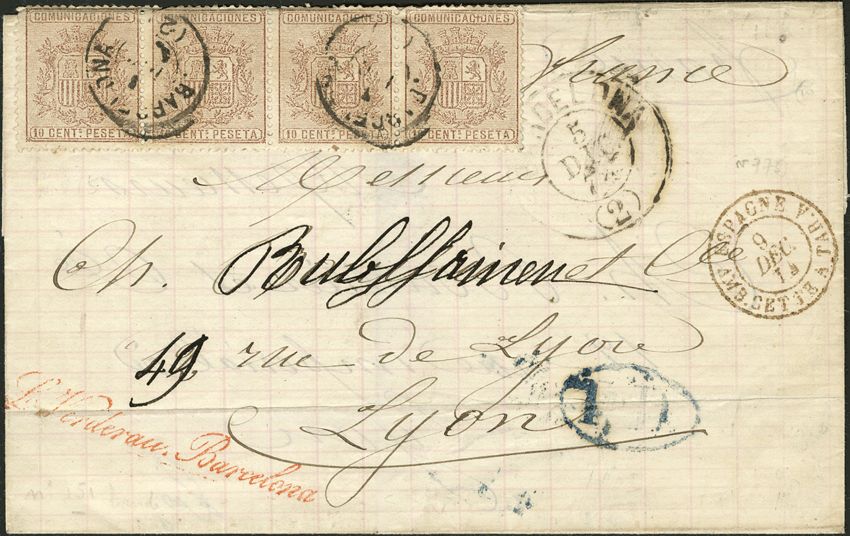 COMUNICACIONES COMUNICACIONES COMUNICACIONES COMUNICACIONES
10 CENT. PESETA 10 CENT. PESETA 10 CENT. PESETA 10 CENT. PESETA
BARCELONA
BARCELONA
France
BARCELONA
5
DIC
(2)
Messieurs
ESPAGNE
9
DEC.
74
AMB. CETTE A TAR.
Ch. et Cie
49 rue de Lyon
Lyon
Barcelona